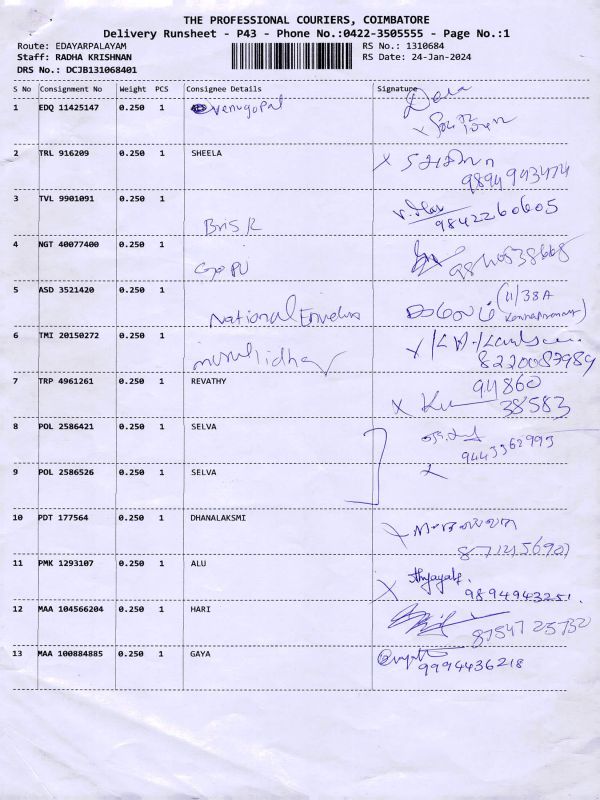 THE PROFESSIONAL COURIERS, COIMBATORE
Delivery Runsheet - P43 - Phone No.:0422-3505555 - Page No.:1
Route: EDAYARPALAYAM
Staff: RADHA KRISHNAN
DRS No.: DCJB131068401
RS No.: 1310684
RS Date: 24-Jan-2024
S No Consignment No Weight PCS Consignee Details Signature
1 EDQ 11425147 0.250 1 venugopal
2 TRL 916209 0.250 1 SHEELA
9894943474
3 TVL 9901091 0.250 1
9842260605
4 NGT 40077400 0.250 1
5 ASD 3521420 0.250 1 National
11/38A
6 TMI 20150272 0.250 1
8220087989
7 TRP 4961261 0.250 1 REVATHY
94860
38583
8 POL 2586421 0.250 1 SELVA
9443362993
9 POL 2586526 0.250 1 SELVA
10 PDT 177564 0.250 1 DHANALAKSMI
11 PMK 1293107 0.250 1 ALU
9894943251.
12 MAA 104566204 0.250 1 HARI
8754725732
13 MAA 100884885 0.250 1 GAYA
9994436218